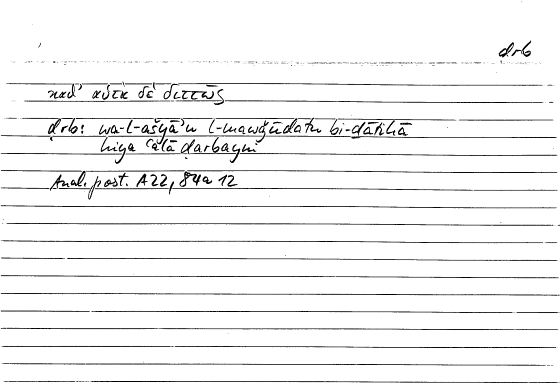 ḍrb
καθ' αὑτὰ δὲ διττῶς
ḍrb: wa-l-ašyāʾu l-mawǧūdatu bi-ḏātihā
hiya ʿalā ḍarbayni
Anal. post. A22, 84a 12